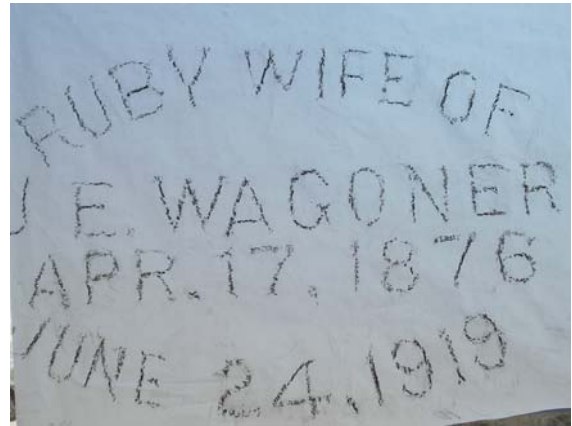 RUBY WIFE OF
J E. WAGONER
APR. 17, 1876
JUNE 24, 1919